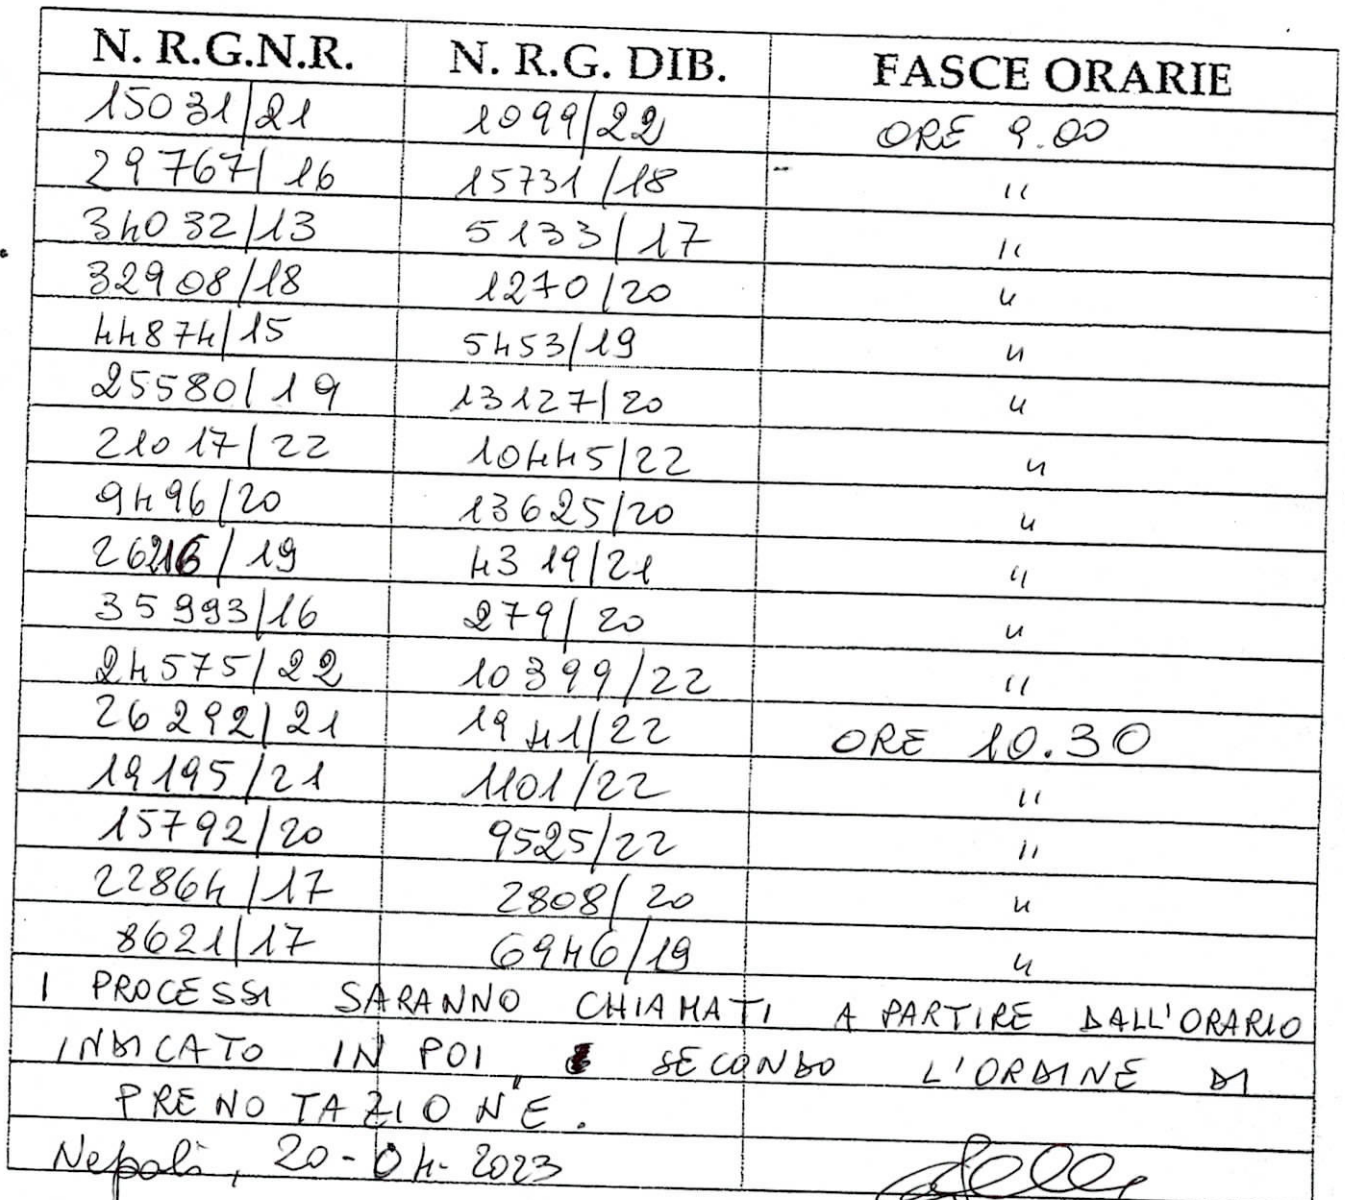 N. R.G.N.R. N. R.G. DIB. FASCE ORARIE
15031/21 1099/22 ORE 9.00
29767/16 15731/18 "
34032/13 5133/17 "
32908/18 1270/20 "
44874/15 5453/19 "
25580/19 13127/20 "
21017/22 10445/22 "
9496/20 13625/20 "
26216/19 4319/21 "
35993/16 279/20 "
24575/22 10399/22 "
26292/21 1941/22 ORE 10.30
19195/21 1101/22 "
15792/20 9525/22 "
22864/17 2808/20 "
8621/17 6946/19 "
I PROCESSI SARANNO CHIAMATI A PARTIRE DALL'ORARIO
INDICATO IN POI, SECONDO L'ORDINE DI
PRENOTAZIONE.
Napoli, 20-04-2023